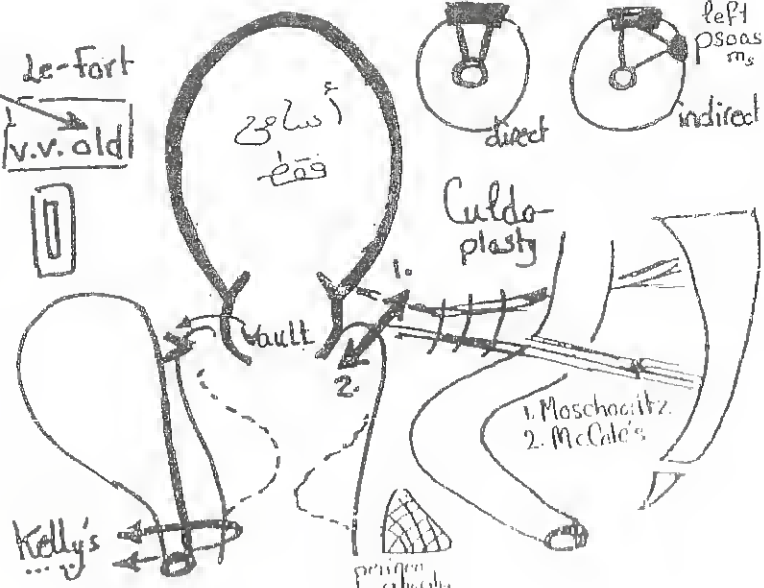 Le-Fort
v.v. old
أسامي
فقط
direct
left
psoas
ms
indirect
Culdo-
plasty
1.
Vault
2.
1. Moschowitz.
2. McCole's
Kelly's